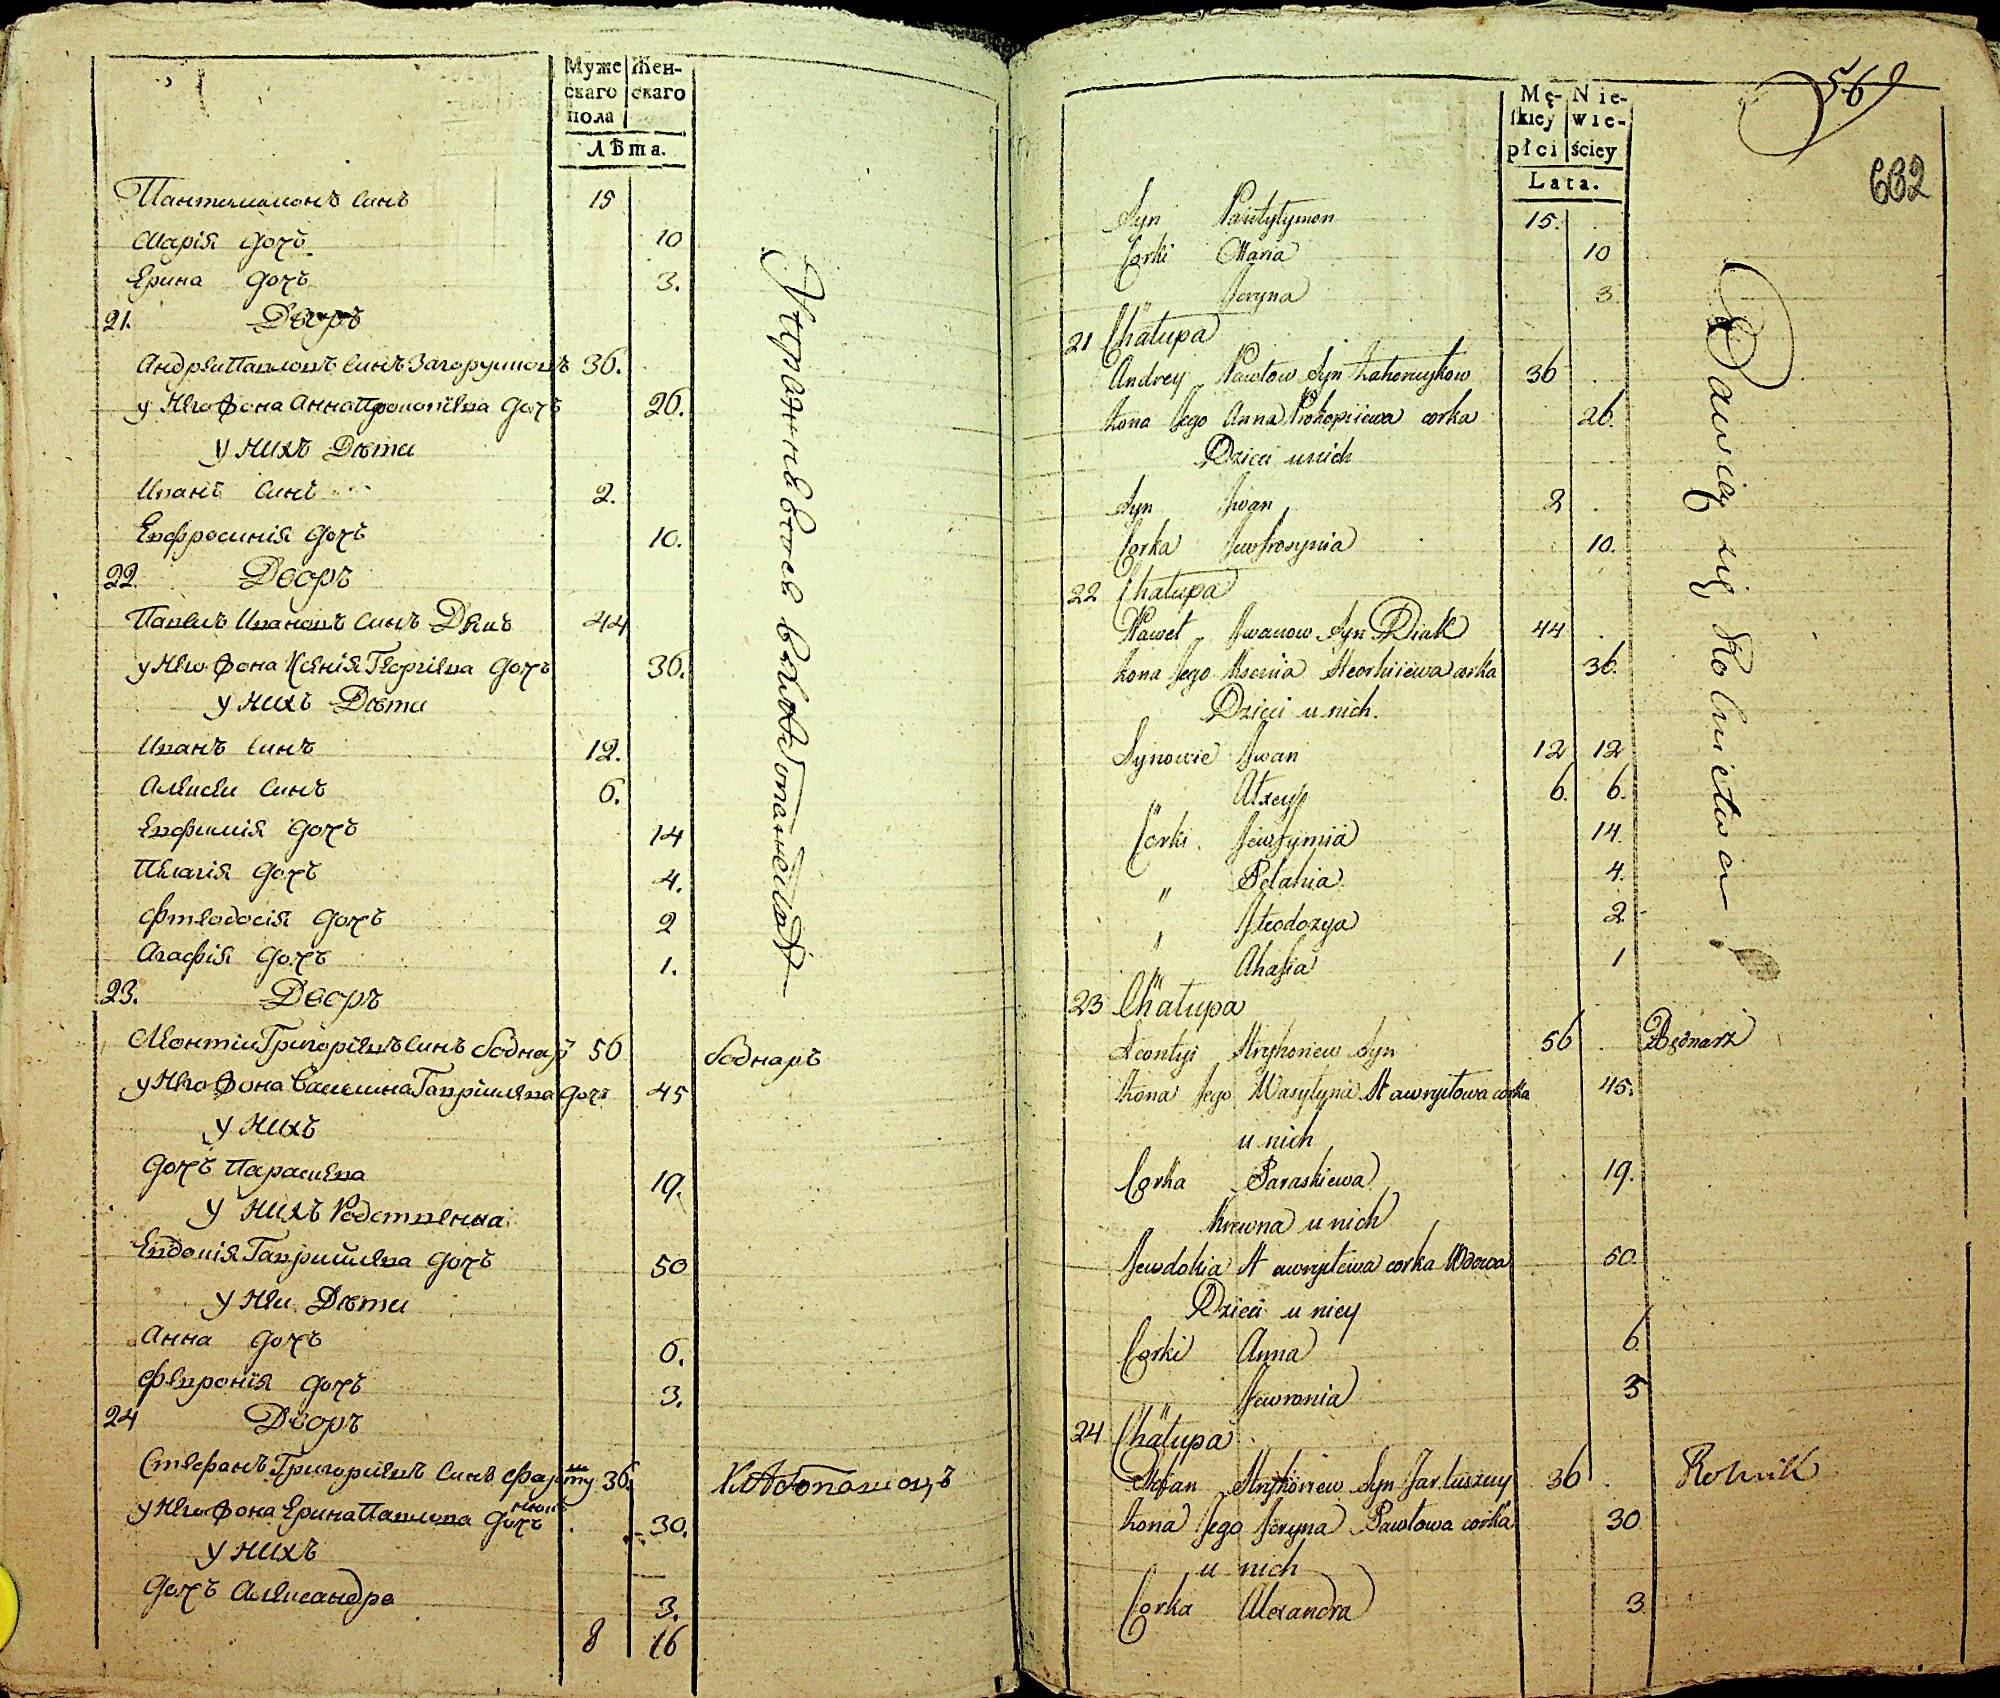 Муже Жен-
скаго скаго
пола
Лѣта.
Пантилимонъ синъ 15
Марія дочъ 10
Ерина дочъ 3.
21. Дворъ
Андрей Павловъ синъ 36.
у Него Жона Анна Прокопіева дочъ 26.
у Нихъ Дѣти
Иванъ синъ 2.
Евфросинія дочъ 10.
22. Дворъ
Павелъ Ивановъ синъ Дякъ 44
у Него Жона Ксенія Георгіева дочъ 36.
у Нихъ Дѣти
Иванъ синъ 12.
Алексѣй синъ 6.
Евфимія дочъ 14
Пелагія дочъ 4.
Фтеодосія дочъ 2
Агафія дочъ 1.
23. Дворъ
Леонтій Григоріевъ синъ Боднаръ 56 Боднаръ
у Него Жона Василина Гавриилева дочъ 45
у Нихъ
дочъ Параскева 19.
у Нихъ Родственна
Евдокія Гавриилева дочъ 50
у Неи Дѣти
Анна дочъ 6.
Февронія дочъ 3.
24 Дворъ
Стефанъ Григоріевъ синъ 36. Хлѣбопашецъ
у Него Жона Ерина Павлова дочъ 30.
у Нихъ
дочъ Александра 3.
8 16
Упражненіе въ хлѣбопашествѣ
569
662
Mę- Nie-
skiey wie-
płci ściey
Lata.
Syn Pantylymon 15.
Corki Maria 10
" Jeryna 3
21 Chałupa
Andrey Pawłow Syn Zahorujkow 36
Zona Jego Anna Prokopiiewa corka 26.
Dzieci u nich
Syn Iwan 2
Corka Jewfrosynia 10.
22 Chałupa
Paweł Iwanow Syn Diak 44
Zona Jego Ksenia Heorhiiewa corka 36.
Dzieci u nich.
Synowie Iwan 12 12
" Alxeyj 6. 6.
Corki Jewfymia 14.
" Pelahia 4.
" Fteodozya 2
" Ahafia 1
23 Chałupa
Leontyi Hryhoriew Syn 56 Bednarz
Zona Jego Wasylyna Hawryłowa corka 45.
u nich
Corka Paraskiewa 19.
Krewna u nich
Jewdokia Hawryłewa corka Wdowa 50.
Dzieci u niey
Corki Anna 6.
" Fewronia 3
24 Chałupa
Stefan Hryhoriew Syn 36 Rolnik
Zona Jego Jeryna Pawłowa corka 30
u nich
Corka Alexandra 3.
Bawią się Rolnictwem